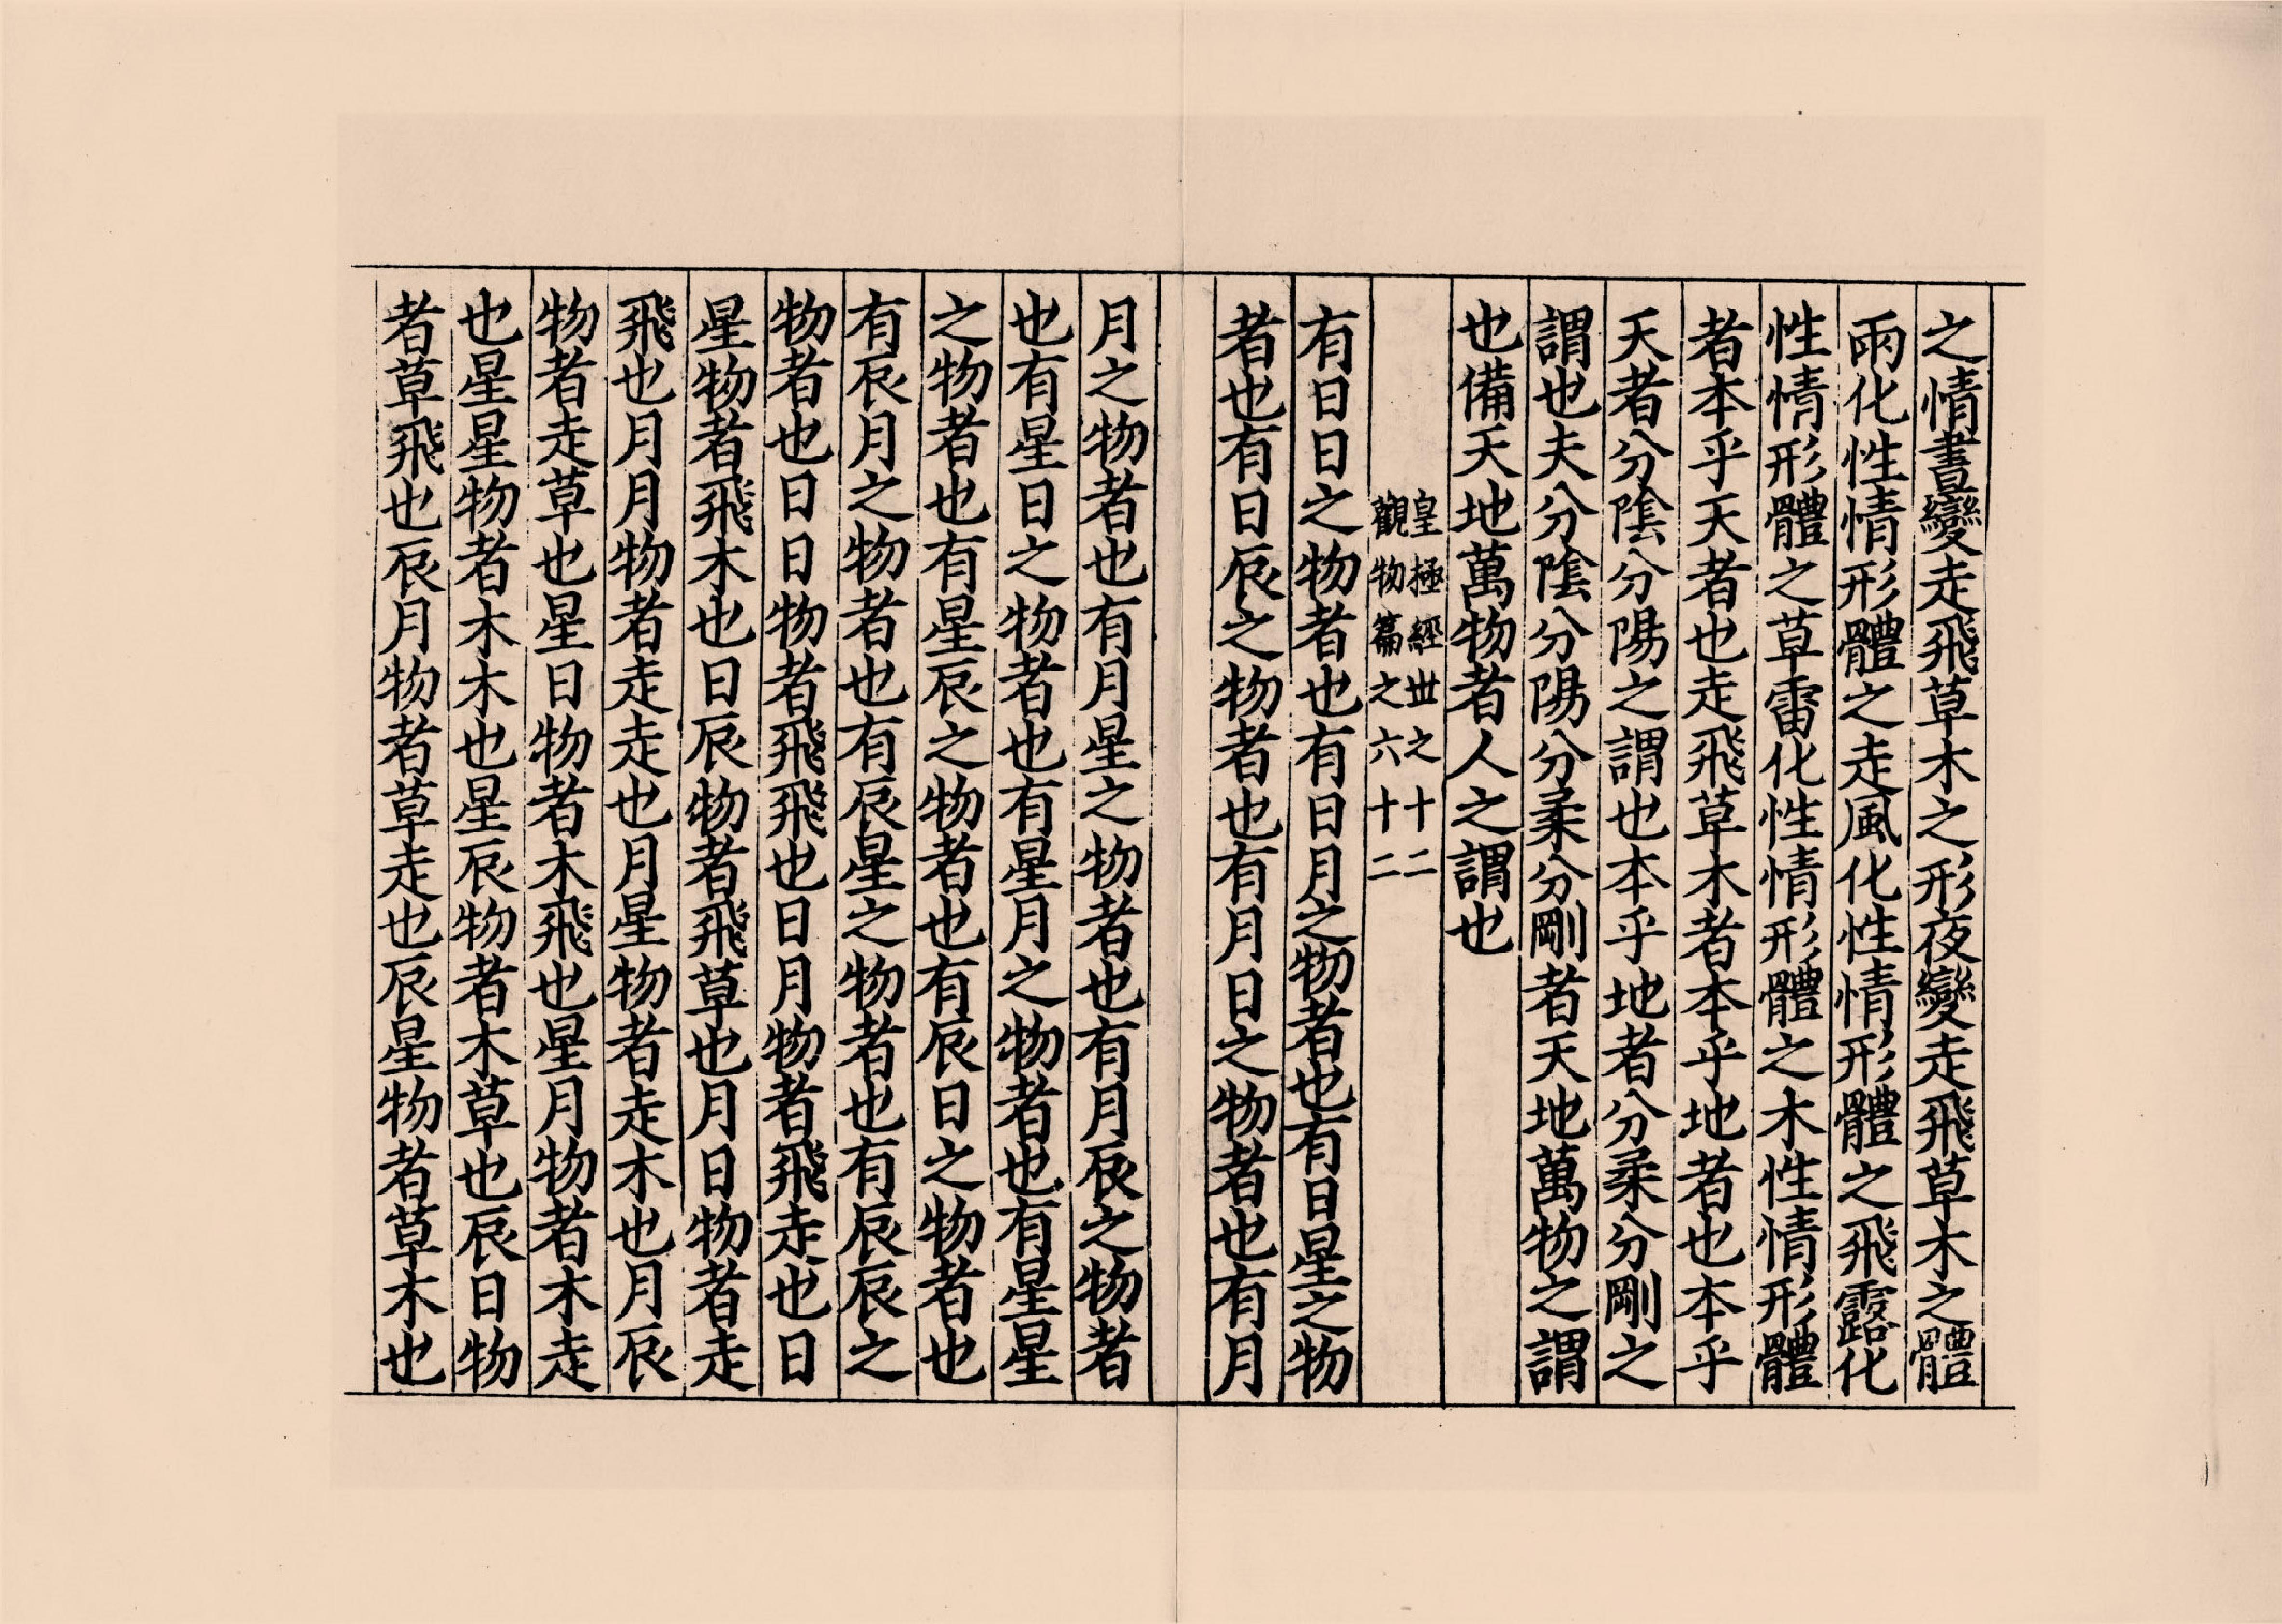 之情晝變走飛草木之形夜變走飛草木之體
雨化性情形體之走風化性情形體之飛露化
性情形體之草雷化性情形體之木性情形體
者本乎天者也走飛草木者本乎地者也本乎
天者分陰分陽之謂也本乎地者分柔分剛之
謂也夫分陰分陽分柔分剛者天地萬物之謂
也備天地萬物者人之謂也
皇極經世之十二
觀物篇之六十二
有日日之物者也有日月之物者也有日星之物
者也有日辰之物者也有月日之物者也有月
月之物者也有月星之物者也有月辰之物者
也有星日之物者也有星月之物者也有星星
之物者也有星辰之物者也有辰日之物者也
有辰月之物者也有辰星之物者也有辰辰之
物者也日日物者飛飛也日月物者飛走也日
星物者飛木也日辰物者飛草也月日物者走
飛也月月物者走走也月星物者走木也月辰
物者走草也星日物者木飛也星月物者木走
也星星物者木木也星辰物者木草也辰日物
者草飛也辰月物者草走也辰星物者草木也